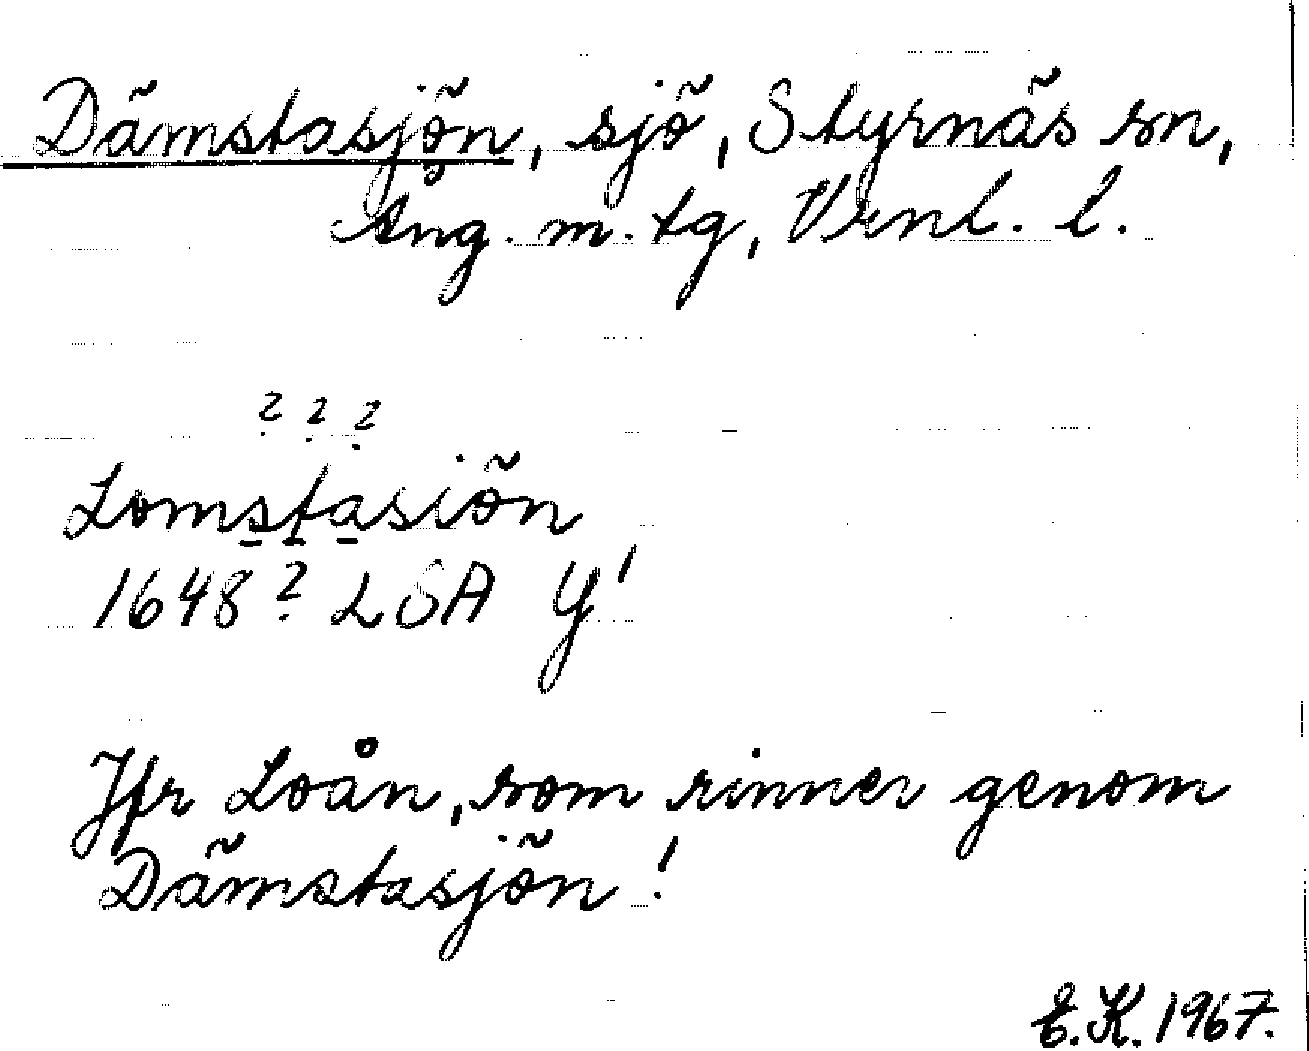 Dämstasjön, sjö, Styrnäs sn,
Ång. m. tg, Vrnl. l.
? ? ?
Lomstasiön
1648? LSA Y!
Jfr Loån, som rinner genom
Dämstasjön!
E.K. 1967.